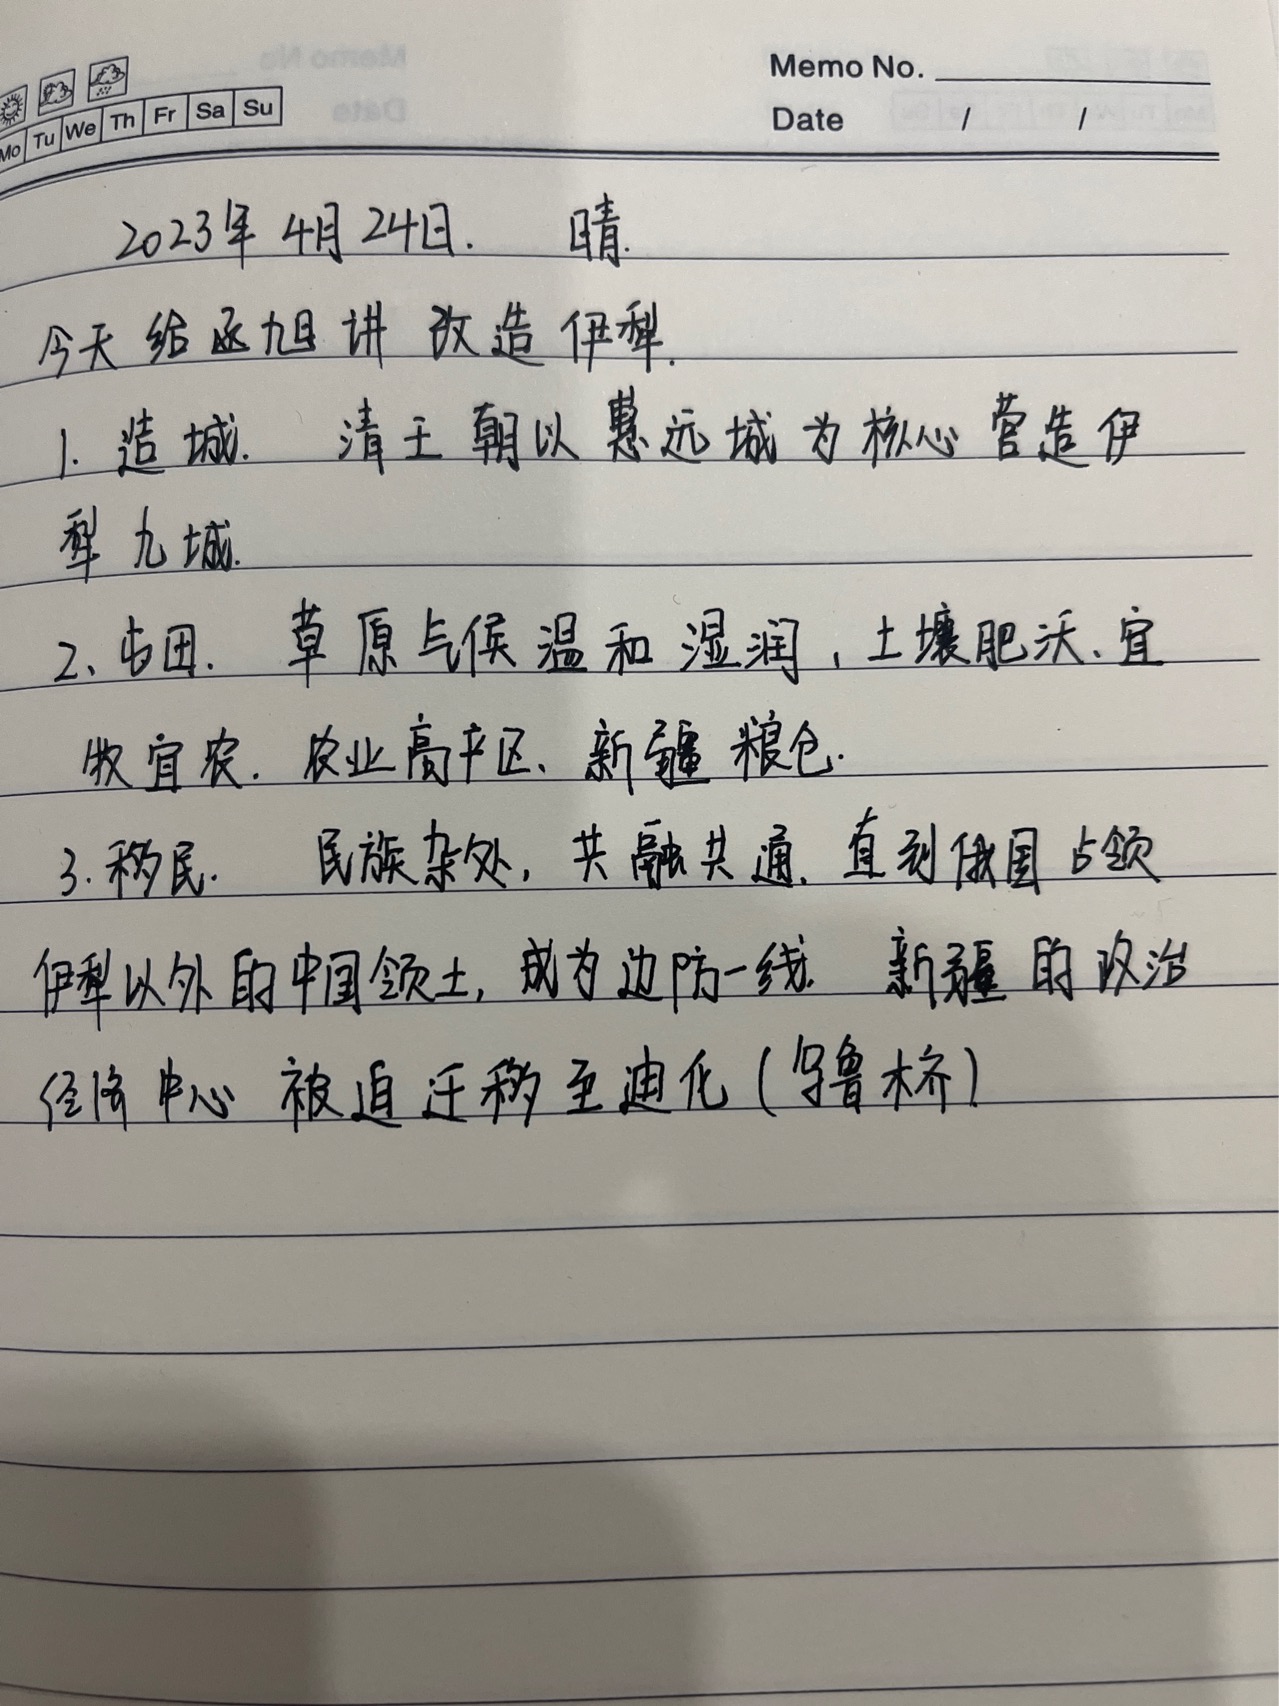 Memo No.
Date / /
Mo Tu We Th Fr Sa Su
2023年4月24日. 晴.
今天给函旭讲改造伊犁.
1. 造城. 清王朝以惠远城为核心营造伊
犁九城.
2、屯田. 草原气候温和湿润,土壤肥沃、宜
牧宜农. 农业高产区、新疆粮仓.
3. 移民. 民族杂处,共融共通. 直到俄国占领
伊犁以外的中国领土,成为边防一线. 新疆的政治
经济中心被迫迁移至迪化(乌鲁木齐)